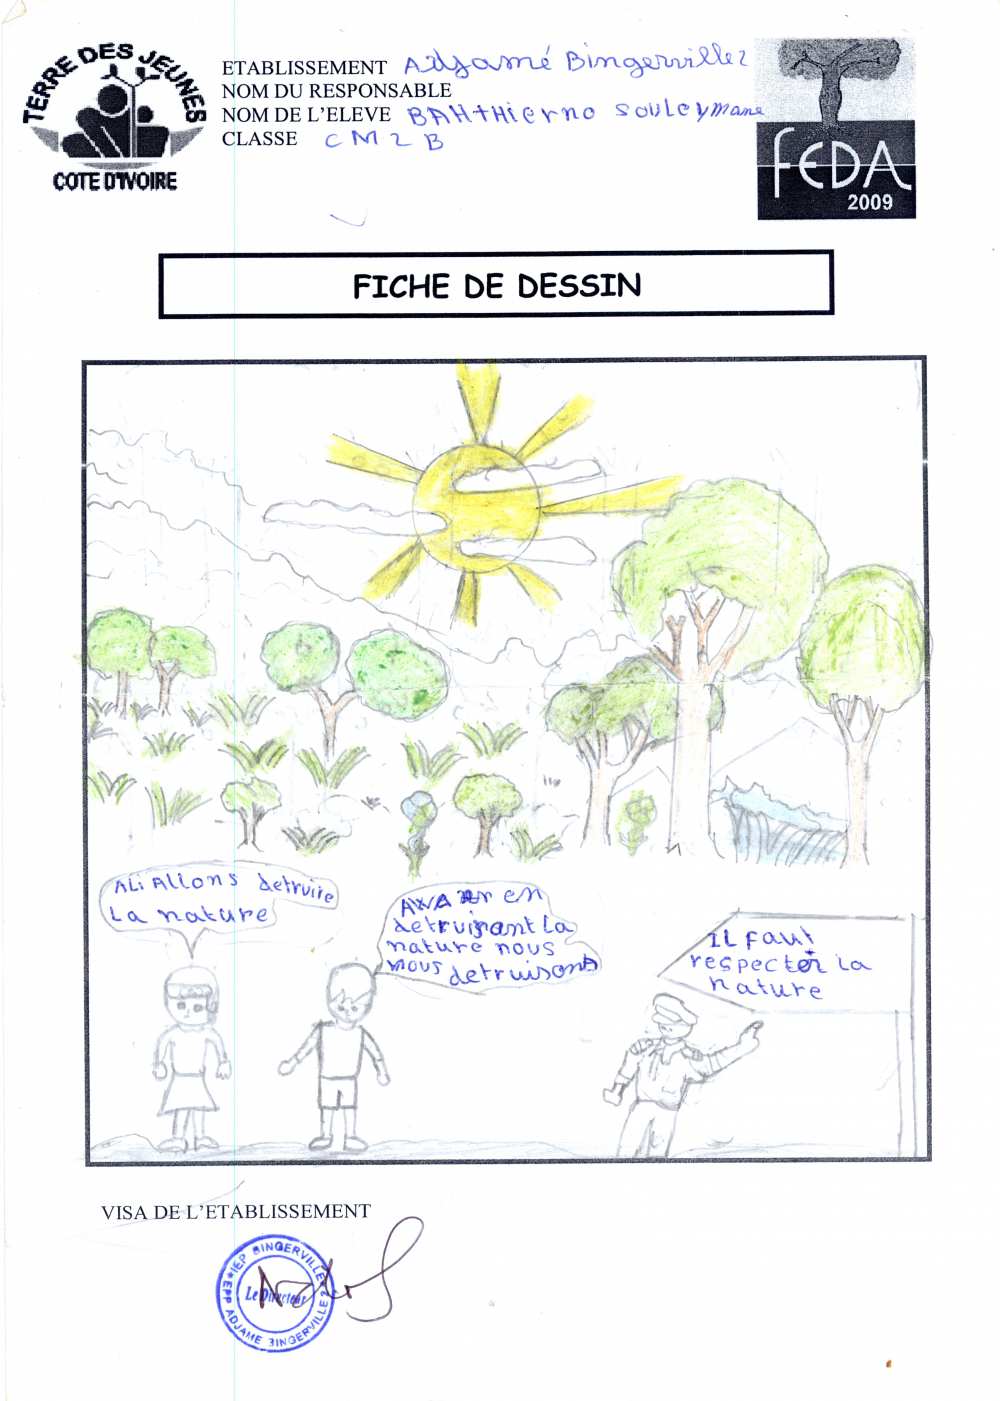 TERRE DES JEUNES
COTE D'IVOIRE
ETABLISSEMENT Adjamé Bingerville 2
NOM DU RESPONSABLE
NOM DE L'ELEVE BAH tHierno souleymane
CLASSE CM2 B
FEDA
2009
FICHE DE DESSIN
ALi Allons detruire
La nature
en
detruisant La
nature nous
nous detruisons
IL faut
respecter La
nature
VISA DE L'ETABLISSEMENT
IEP BINGERVILLE 2
Le Directeur
EPP ADJAME BINGERVILLE 2